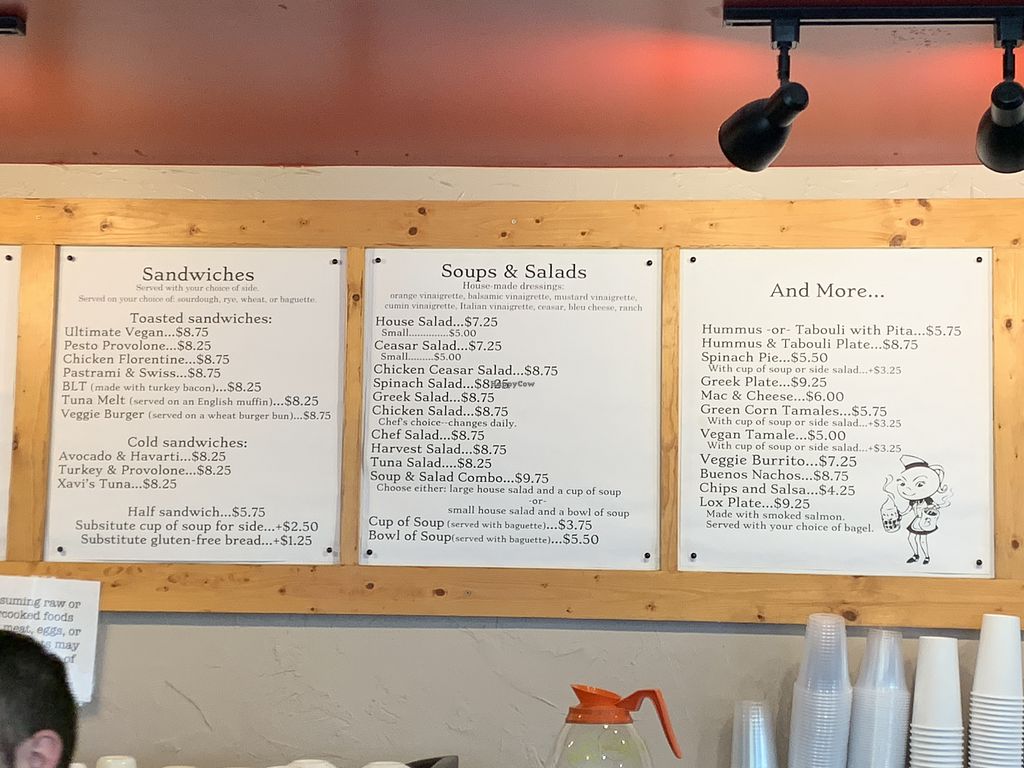 Sandwiches
Served with your choice of side.
Served on your choice of: sourdough, rye, wheat, or baguette.
Toasted sandwiches:
Ultimate Vegan...$8.75
Pesto Provolone...$8.25
Chicken Florentine...$8.75
Pastrami & Swiss...$8.75
BLT (made with turkey bacon)...$8.25
Tuna Melt (served on an English muffin)...$8.25
Veggie Burger (served on a wheat burger bun)...$8.75
Cold sandwiches:
Avocado & Havarti...$8.25
Turkey & Provolone...$8.25
Xavi's Tuna...$8.25
Half sandwich...$5.75
Subsitute cup of soup for side...+$2.50
Substitute gluten-free bread...+$1.25
Soups & Salads
House-made dressings:
orange vinaigrette, balsamic vinaigrette, mustard vinaigrette,
cumin vinaigrette, Italian vinaigrette, ceasar, bleu cheese, ranch
House Salad...$7.25
Small..............$5.00
Ceasar Salad...$7.25
Small.........$5.00
Chicken Ceasar Salad...$8.75
Spinach Salad...$8.25
HappyCow
Greek Salad...$8.75
Chicken Salad...$8.75
Chef's choice--changes daily.
Chef Salad...$8.75
Harvest Salad...$8.75
Tuna Salad....$8.25
Soup & Salad Combo...$9.75
Choose either: large house salad and a cup of soup
-or-
small house salad and a bowl of soup
Cup of Soup (served with baguette)...$3.75
Bowl of Soup(served with baguette)...$5.50
And More...
Hummus -or- Tabouli with Pita...$5.75
Hummus & Tabouli Plate...$8.75
Spinach Pie...$5.50
With cup of soup or side salad...+$3.25
Greek Plate...$9.25
Mac & Cheese...$6.00
Green Corn Tamales...$5.75
With cup of soup or side salad...+$3.25
Vegan Tamale...$5.00
With cup of soup or side salad...+$3.25
Veggie Burrito...$7.25
Buenos Nachos...$8.75
Chips and Salsa...$4.25
Lox Plate...$9.25
Made with smoked salmon.
Served with your choice of bagel.
suming raw or
rcooked foods
meat, eggs, or
ts may
of